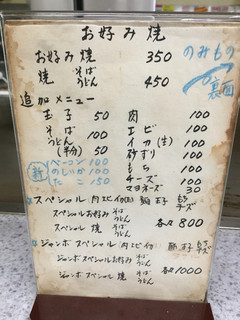 お好み焼
お好み焼 350
焼 そば うどん 450
のみもの
裏面
追加メニュー
玉子 50
そば うどん 100
(半分) 50
新
ベーコン 100
のしいか 100
たこ 150
肉 100
エビ 100
イカ(生) 100
砂すり 100
もち 100
チーズ 100
マヨネーズ 30
スペシャル(肉エビイカ) 玉子 もち チーズ
スペシャルお好み そば うどん
スペシャル焼 そば うどん 各々800
ジャンボスペシャル(肉エビイカ) 玉子 もち チーズ
ジャンボスペシャルお好み そば うどん
ジャンボスペシャル焼 そば うどん 各々1000